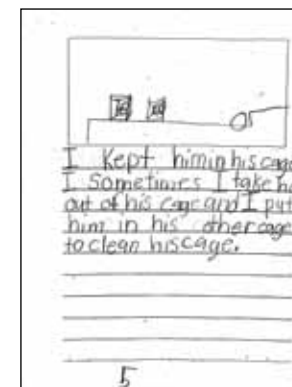 I Kept him in his cage
I Sometimes I take h
out of his cage and I put
him in his other cage
to clean his cage.
5